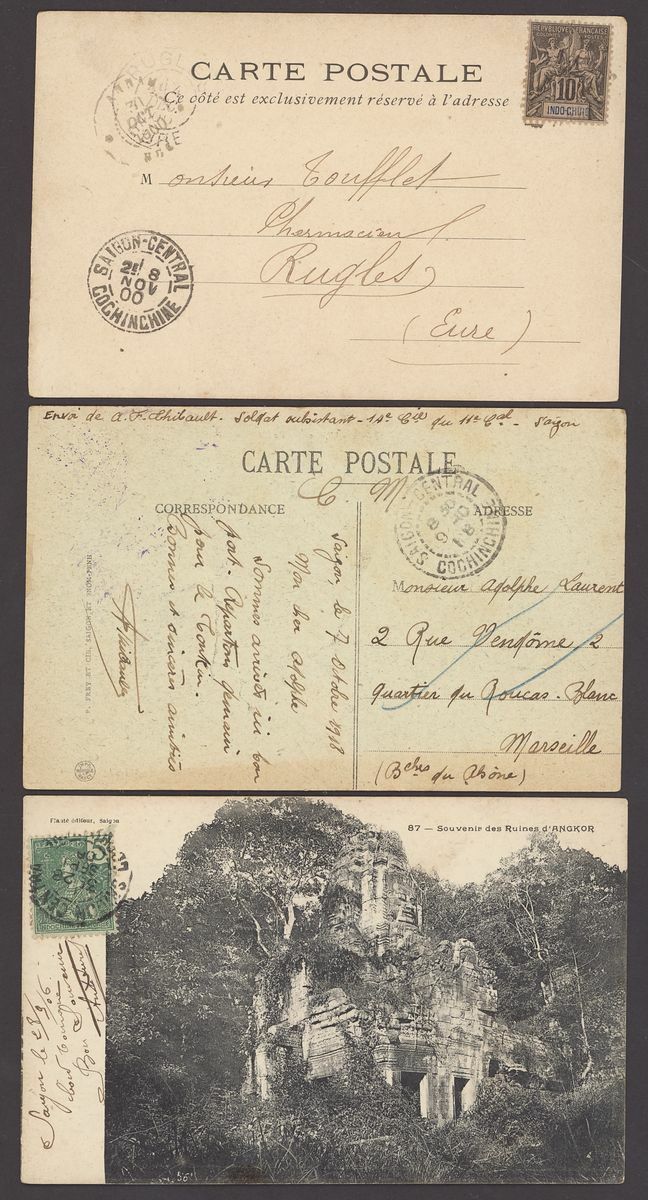 CARTE POSTALE
Ce côté est exclusivement réservé à l'adresse
REPUBLIQUE FRANÇAISE
COLONIES POSTES
10
INDO-CHINE
RUGLES
EURE
Monsieur Toufflet
Pharmacien
Rugles
(Eure)
SAIGON-CENTRAL
2E 8
NOV
00
COCHINCHINE
Envoi de A. F. Thibault - Soldat subsistant - 14e Cie du 11e Cal - Saïgon
CARTE POSTALE
C. M.
CORRESPONDANCE
ADRESSE
SAIGON-CENTRAL
COCHINCHINE
Saïgon, le 7 Octobre 1918
Mon cher Adolphe
Sommes arrivés ici bon
port. Repartons demain
pour le Tonkin.
Bonnes et sincères amitiés
P. FREY ET CIE, SAIGON ET PNOM-PENH
Monsieur Adolphe Laurent
2 Rue Vendôme 2
Quartier du Roucas-Blanc
Marseille
(Bches du Rhône)
Planté éditeur, Saigon
87 — Souvenir des Ruines d'ANGKOR
5
Saïgon le 28/9/06
Bon